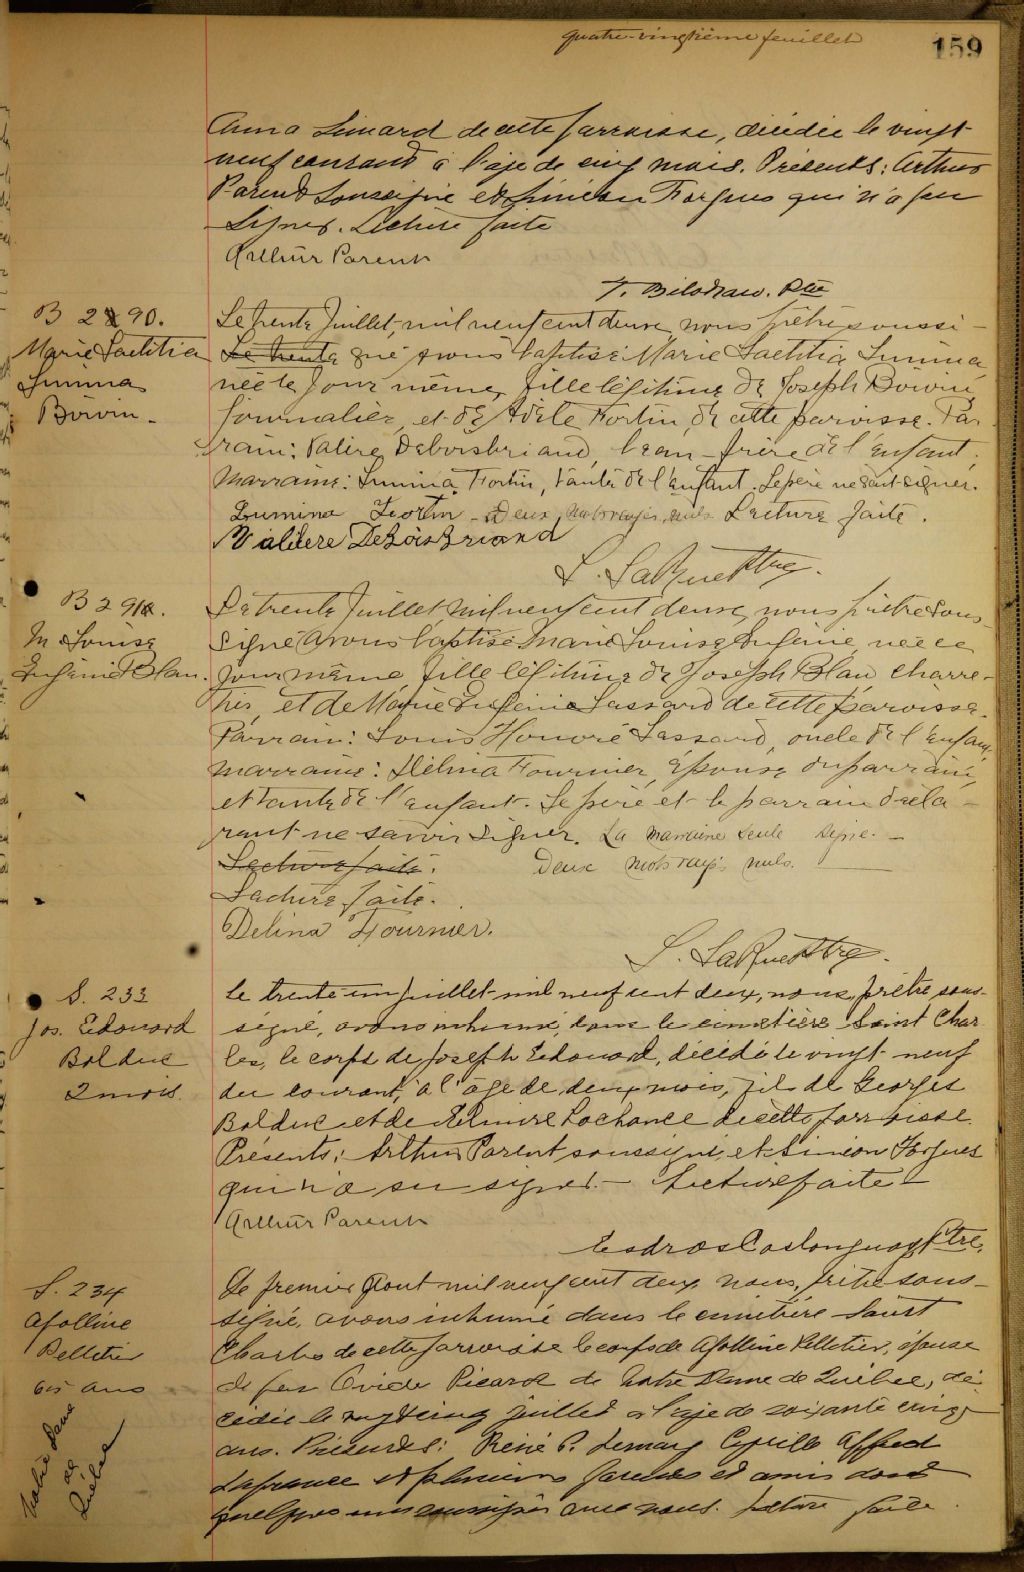 quatre-vingtième feuillet
159
Anna Simard de cette parroisse, décédée le vingt-
neuf courant à l'age de cinq mois. Présents: Arthur
Parent soussigné et Siméon Forgues qui n'a su
signer. Lecture faite
Arthur Parent
T. Bilodeau. Ptre
B 290.
Marie Laetitia
Lumina
Boivin -
Le trente Juillet, mil neuf cent deux, nous prêtre soussi-
Le trente gné avons baptisé Marie Laetitia Lumina
née le jour même, fille légitime de Joseph Boivin,
journalier, et de Adèle Fortin, de cette paroisse. Par-
rain: Valère Deboisbriand, beau-frère de l'enfant,
Marraine: Lumina Fortin, tante de l'enfant. Le père ne sait signer.
Lumina Fortin - Deux mots rayés nuls Lecture faite.
Valere DeBoisBriand
L. LaRue Ptre.
B 291.
M. Louise
Eugénie Blan.
Le trente Juillet, mil neuf cent deux, nous prêtre sous-
signé avons baptisé Marie Louise Eugénie née ce
jour même, fille légitime de Joseph Blan, charre-
tier, et de Marie Eugénie Lassard de cette paroisse.
Parrain: Louis Honoré Lassard, oncle de l'enfant,
Marraine: Délina Fournier, épouse du parrain,
et tante de l'enfant. Le père et le parrain décla-
rant ne savoir signer. La marraine seule signe. -
Lecture faite. Deux mots rayés nuls.
Lecture faite.
Delina Fournier.
L. LaRue Ptre.
S. 233
Jos. Edouard
Bolduc
2 mois
Le trente-un juillet mil neuf cent deux, nous, prêtre sous-
signé, avons inhumé, dans le cimetière Saint Char
les, le corps de Joseph Edouard, décédé le vingt-neuf
du courant, à l'age de deux mois, fils de Georges
Bolduc et de Elmire Lachance de cette parroisse.
Présents: Arthur Parent soussigné et Siméon Forgues
qui n'a su signer. - Lecture faite -
Arthur Parent
Esdras Coslonguay Ptre.
S. 234
Apolline
Pelletier
65 ans
Notre Dame
de
Québec
Le premier Aout mil neuf cent deux nous, prêtre sous-
signé, avons inhumé dans le cimetière Saint
Charles de cette parroisse le corps de Apolline Pelletier, épouse
de feu Ovide Picard de Notre Dame de Québec, dé
cédée le vingt cinq juillet à l'age de soixante cinq
ans. Présents: René P. Lemay Cyrille Alfred
Lafrance et plusieurs parents et amis dont
quelques uns soussignés avec nous. Lecture faite.